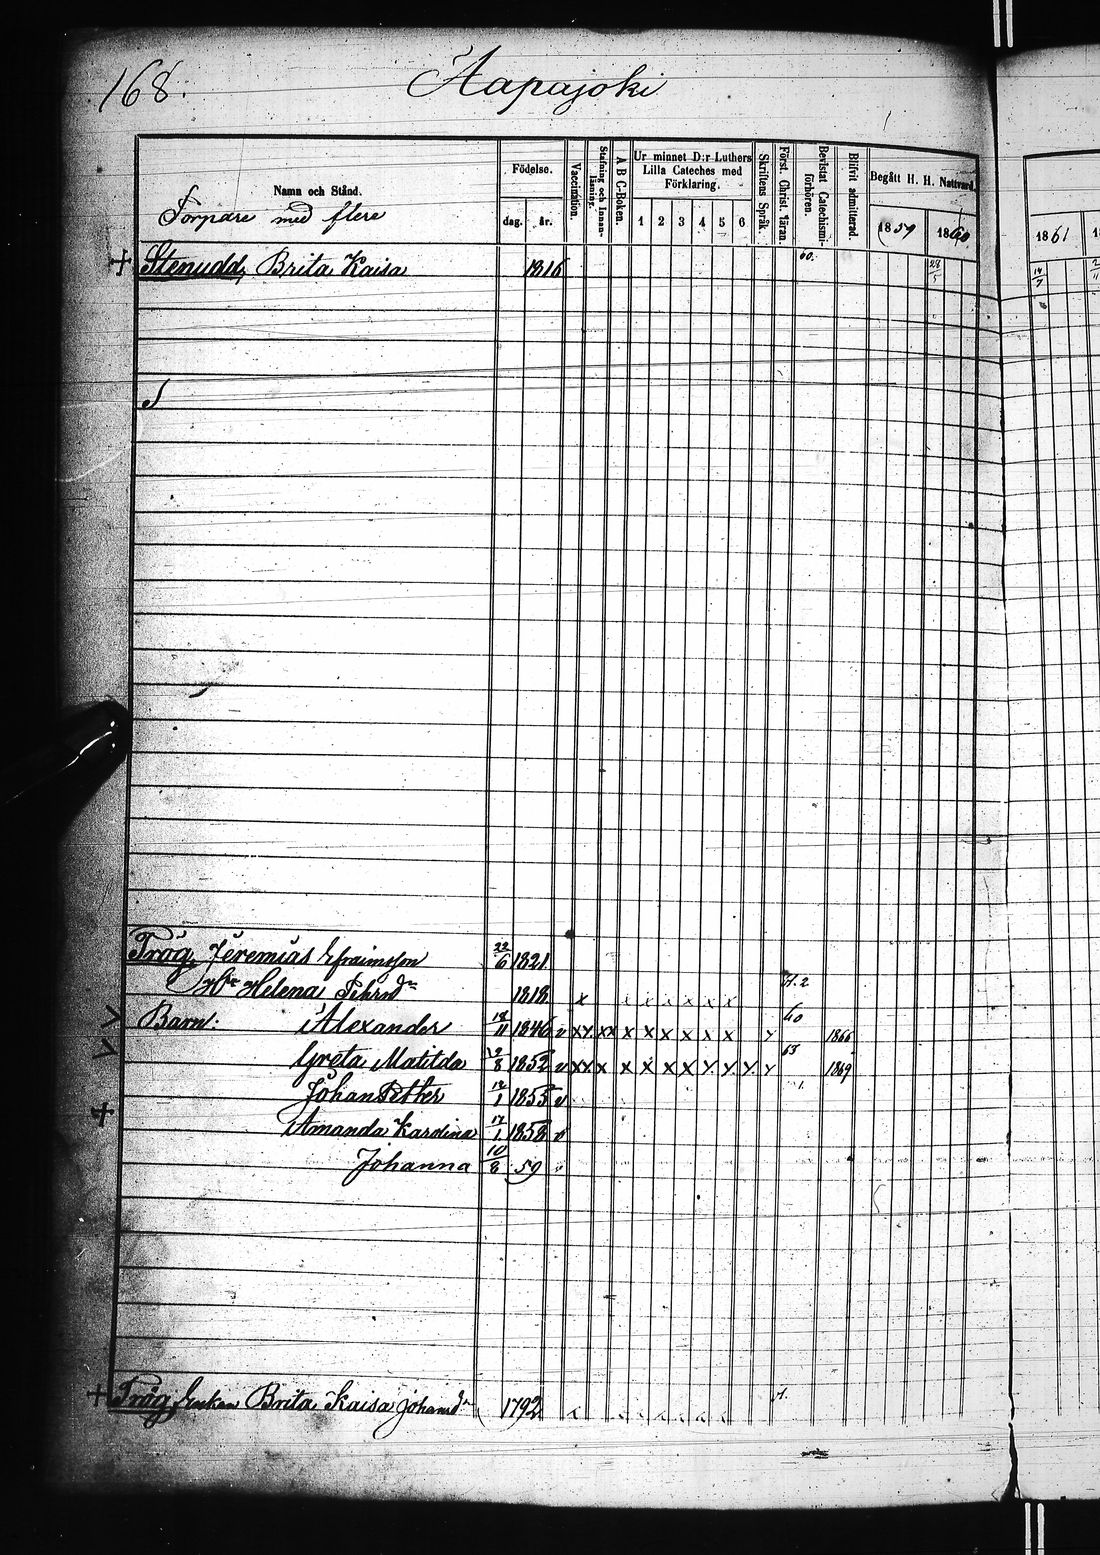 168.
Haapajoki
Namn och Stånd.
Torpare med flere
Födelse.
dag. år.
Vaccination.
Stafning och Innanläsning.
A B C-Boken.
Ur minnet D:r Luthers Lilla Cateches med Förklaring.
1 2 3 4 5 6
Skriftens Språk.
Först. Christ. läran.
Bevistat Catechismiförhören.
Blifvit admitterad.
Begått H. H. Nattvard.
1859 1860
1861
+ Stenudd, Brita Kaisa 1816 60. 14/7
Trög, Jeremias Efraimsson 22/6 1821
Hu Helena Pehrsdr 1818 x
Barn: Alexander 18/11 1846 v x x x x x x x x x 60 1866
Greta Matilda 12/8 1852 v x x x x x x x 1869
Johan Petter 12/1 1855 v
+ Amanda Karolina 17/1 1858 v
Johanna 10/8 59 v
+ Trög, Enkan Brita Kaisa Johansdr 1792